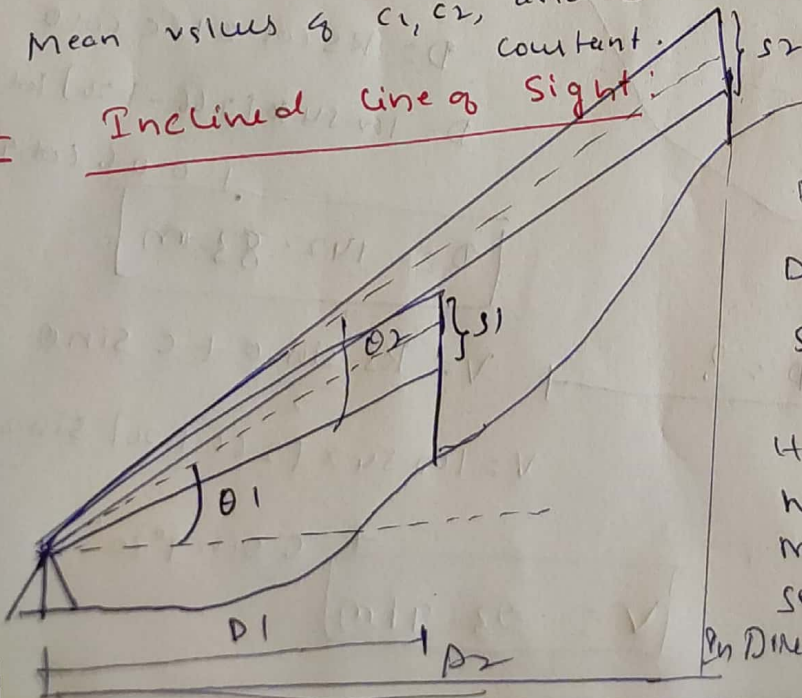 Mean values of C1, C2,
constant.
I Inclined line of Sight:
S2
θ2
S1
θ1
D1
D2